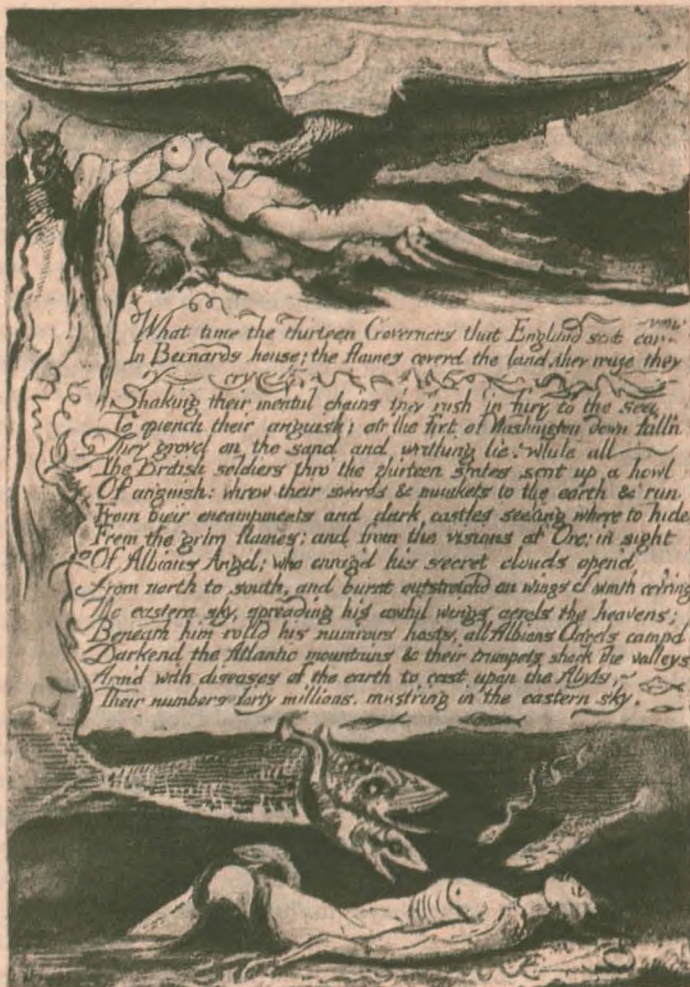 What time the thirteen Governors that England sent con-
-vene
In Bernards house; the flames coverd the land, they rouze they
cry
Shaking their mental chains they rush in fury to the sea
To quench their anguish; at the feet of Washington down falln
They grovel on the sand and writhing lie. while all
The British soldiers thro' the thirteen states sent up a howl
Of anguish: threw their swords & muskets to the earth & run
From their encampments and dark castles seeking where to hide
From the grim flames; and from the visions of Orc; in sight
Of Albions Angel; who enrag'd his secret clouds open'd
From north to south, and burnt outstretchd on wings of wrath cov'ring
The eastern sky, spreading his awful wings across the heavens;
Beneath him roll'd his num'rous hosts, all Albions Angels camp'd
Darkend the Atlantic mountains & their trumpets shook the valleys
Arm'd with diseases of the earth to cast upon the Abyss,
Their numbers forty millions, must'ring in the eastern sky.